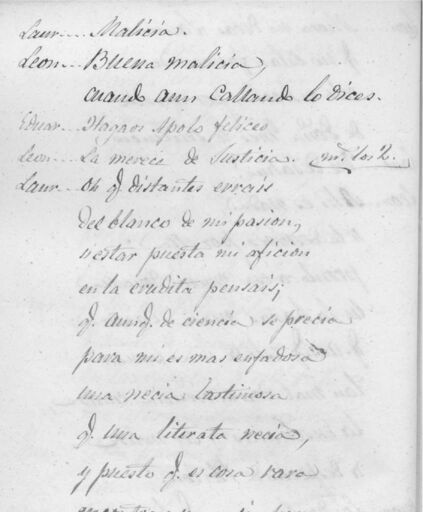 Laur... Malicia.
Leon... Buena malicia,
cuando aun Callando lo dices.
Eduar... Hagaos Apolo felices
Leon... La merece de Justicia.
Laur... Oh q.e distantes errais
del blanco de mi pasion,
si estar puesta mi aficion
en la erudita pensais;
q.e aunq.e de ciencia se precia
para mi es mas enfadosa
una necia lastimosa
q.e una literata necia,
y puesto q.e es cosa rara